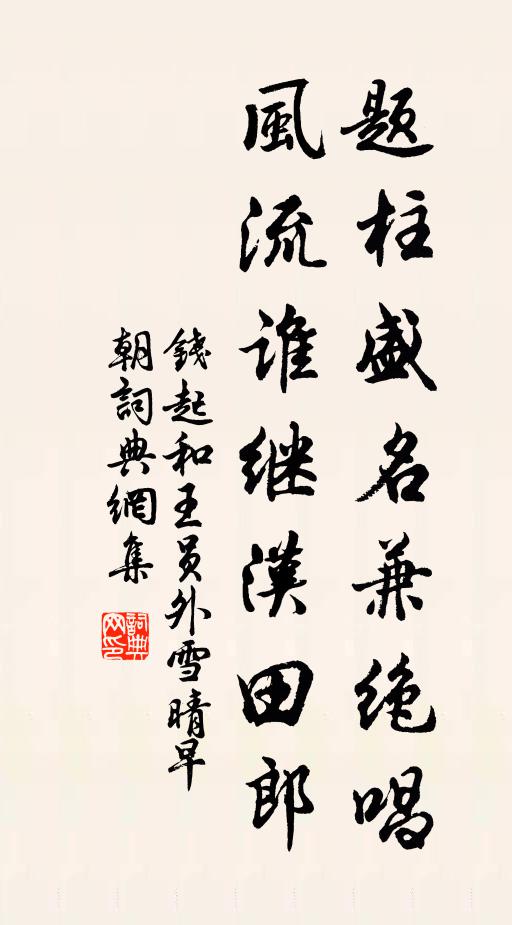 題柱盛名兼绝唱
風流誰继漢田郎
錢起和王员外雪晴早
朝詞典網集
詞典
网印